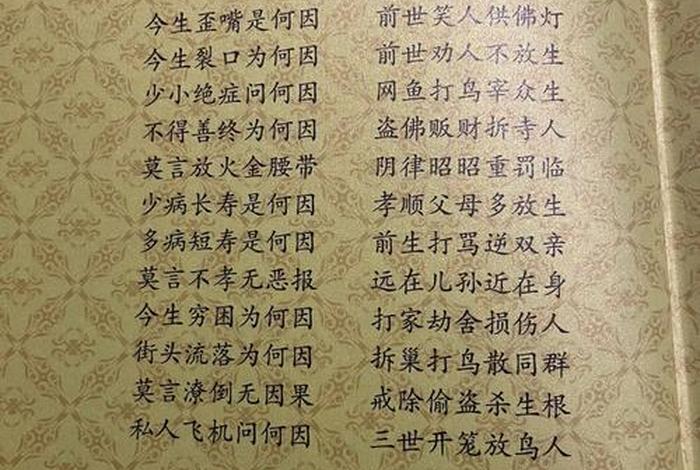 今生歪嘴是何因 前世笑人供佛灯
今生裂口为何因 前世劝人不放生
少小绝症问何因 网鱼打鸟宰众生
不得善终为何因 盗佛贩财拆寺人
莫言放火金腰带 阴律昭昭重罚临
少病长寿是何因 孝顺父母多放生
多病短寿是何因 前生打骂逆双亲
莫言不孝无恶报 远在儿孙近在身
今生穷困为何因 打家劫舍损伤人
街头流落为何因 拆巢打鸟散同群
莫言潦倒无因果 戒除偷盗杀生根
私人飞机问何因 三世开笼放鸟人